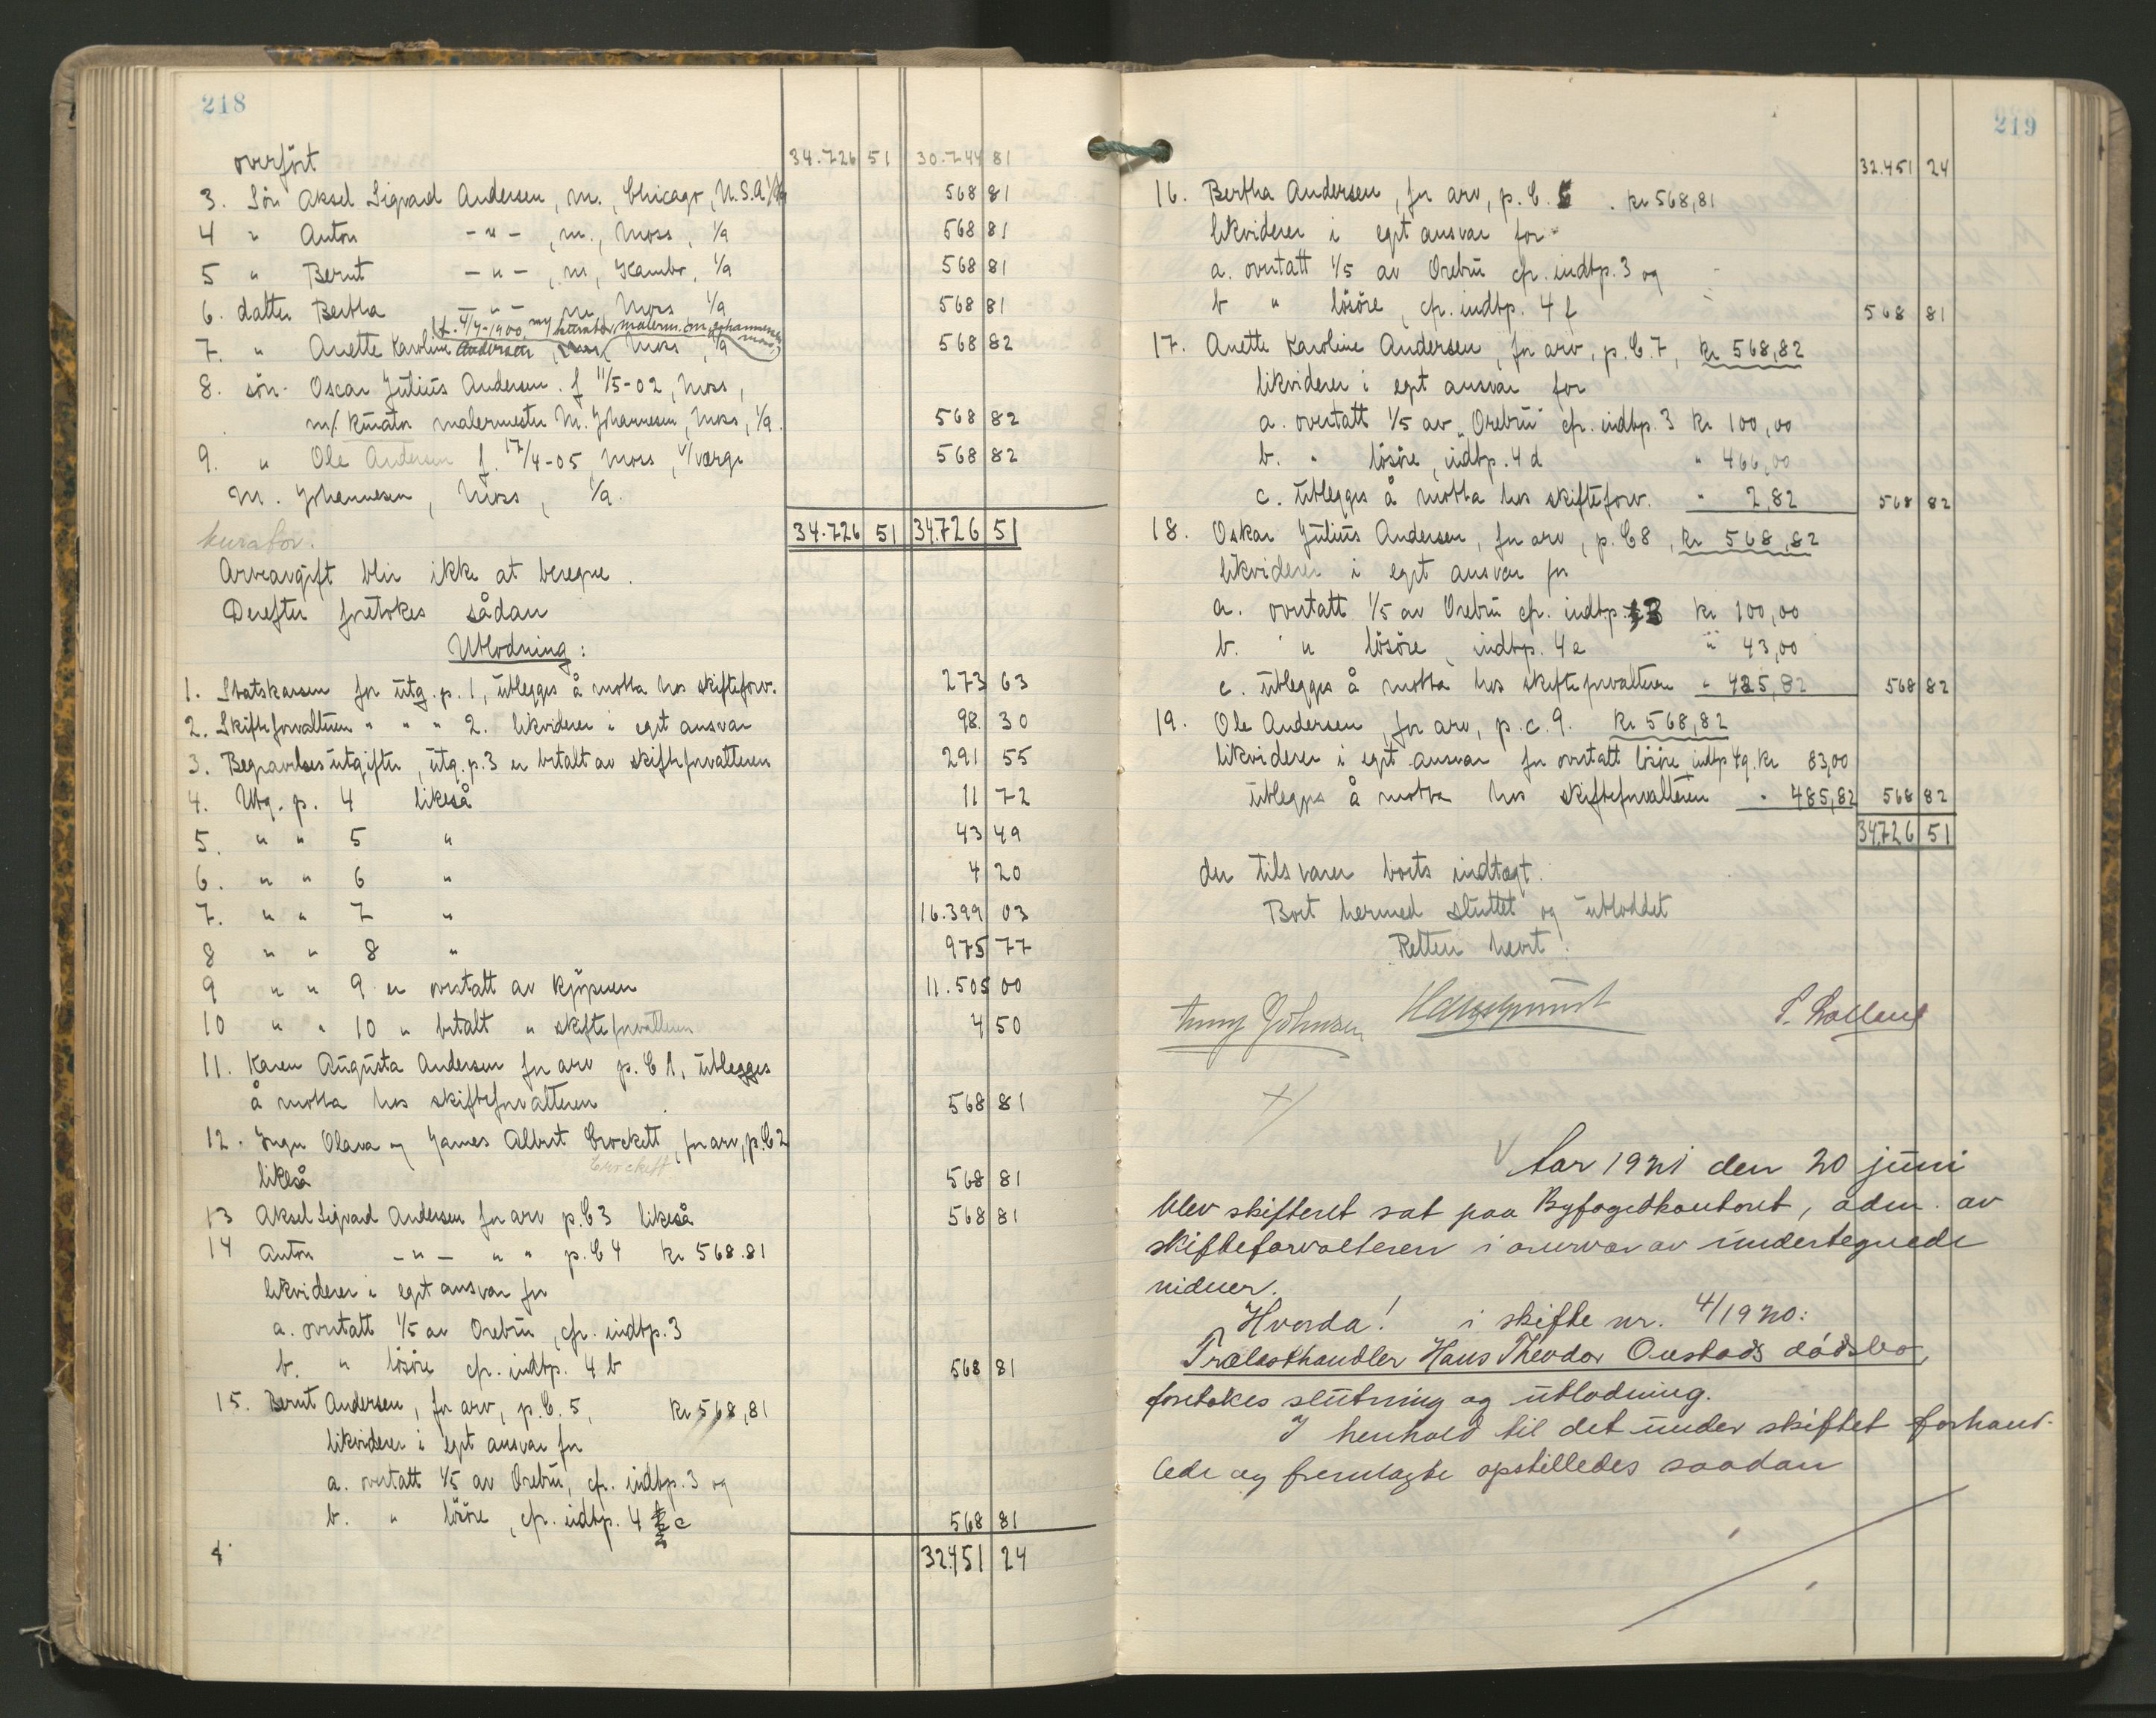 218
overført 34.726 51 30.744 81
3. Søn Aksel Sigvard Andersen, m., Chicago, U.S.A. 1/9 568 81
4 " Anton -"-, m., Moss, 1/9 568 81
5 " Bernt -"-, m, Kambo, 1/9 568 81
6. datter Bertha -"- m, Moss 1/9 568 81
f. 4/4-1900, m/ kurator malerm. M. Johannesen, Moss,
7. " Anette Karoline Andersen, Moss, 1/9 568 82
8. søn Oscar Julius Andersen f 11/5-02, Moss,
m/ kurator malermester M. Johannesen, Moss, 1/9. 568 82
9. " Ole Andersen f. 17/4-05, Moss, v/verge 568 82
M. Johannesen, Moss, 1/9.
34.726 51 34726 51
kurator.
Arveavgift blir ikke at beregne.
Derefter foretokes sådan
Utlodning:
1. Statskassen for utg. p. 1, utlegges å motta hos skifteforv. 273 63
2. Skifteforvalteren " " " 2. likviderer i eget ansvar 98. 30
3. Begravelsesutgifter, utg. p. 3 er betalt av skifteforvalteren 291 55
4. Utg. p. 4 likeså 11 72
5. " " 5 " 43 49
6. " " 6 " 4 20
7. " " 7 " 16.399 03
8 " " 8 " 975 77
9 " " 9 er overtatt av kjøperen 11.505 00
10 " " 10 " betalt " skifteforvalteren 4 50
11. Karen Augusta Andersen for arv p. C 1, utlegges
å motta hos skifteforvalteren 568 81
12. Inga Olava og James Albert Crockett, for arv, p. C 2
Crockett
likeså 568 81
13 Aksel Sigvard Andersen for arv p. C 3 likeså 568 81
14 Anton -"- " " p. C 4 kr 568.81
likviderer i eget ansvar for
a. overtatt 1/5 av Orebru, cfr. indtp. 3
b. " løsøre cfr. indtp. 4 b 568 81
15. Bernt Andersen, for arv, p. C. 5, kr 568,81
likviderer i eget ansvar for
a. overtatt 1/5 av Orebru, cfr. indtp. 3 og
b. " løsøre, cfr. indtp. 4 c 568 81
32451 24
219
32.451 24
16. Bertha Andersen, for arv, p. C. 6. kr 568,81
likviderer i eget ansvar for
a. overtatt 1/5 av Orebru cfr. indtp. 3 og
b " løsøre, cfr. indtp. 4 f 568 81
17. Anette Karoline Andersen, for arv, p. C. 7, kr 568,82
likviderer i eget ansvar for
a. overtatt 1/5 av "Orebru" cfr. indtp. 3 kr 100,00
b. " løsøre, indtp. 4 d " 466,00
c. utlegges å motta hos skifteforv. " 2,82 568 82
18. Oskar Julius Andersen, for arv, p. C 8, kr 568,82
likviderer i eget ansvar for
a. overtatt 1/5 av Orebru cfr. indtp. 3 kr 100,00
b. " løsøre, indtp. 4 e " 43,00
c. utlegges å motta hos skifteforvalteren " 425,82 568 82
19. Ole Andersen, for arv, p. c. 9. kr 568,82
likviderer i eget ansvar for overtatt løsøre, indtp 4 g. kr 83,00
utlegges å motta hos skifteforvalteren " 485,82 568 82
34726 51
der tilsvarer boets indtægt.
Boet hermed sluttet og utloddet
Retten hevet!
Johnsen
Aar 1921 den 20 juni
blev skifteret sat paa Byfogedkontoret, adm. av
skifteforvalteren i overvær av undertegnede
vidner.
Hvorda! i skifte nr. 4/1920:
Trælasthandler Hans Theodor Onstads dødsbo,
foretokes slutning og utlodning.
I henhold til det under skiftet forhand-
lede og fremlagte opstilledes saadan